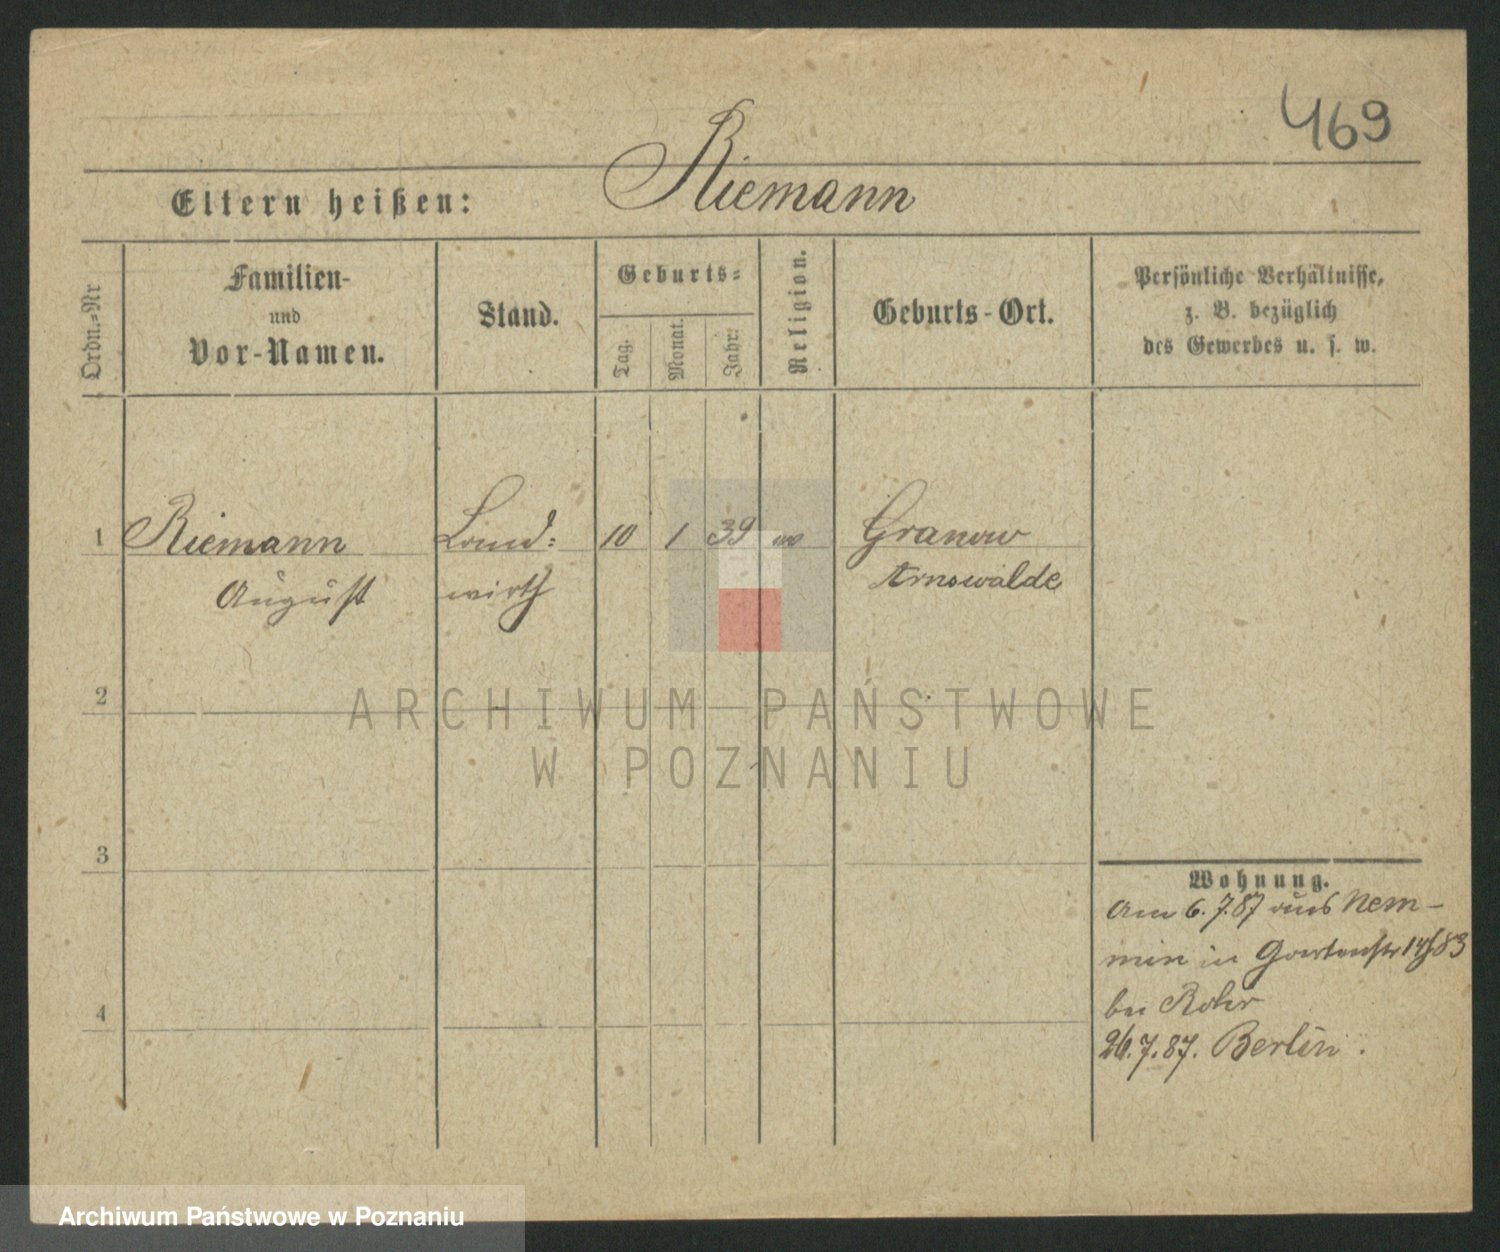 469
Riemann
Eltern heißen:
Ordn.-Nr
Familien-
und
Vor-Namen.
Stand.
Geburts-
Tag.
Monat.
Jahr.
Religion.
Geburts-Ort.
Persönliche Verhältnisse,
z. B. bezüglich
des Gewerbes u. s. w.
1 Riemann Land- 10 1 39 Granow
August wirth Arnswalde
2
ARCHIWUM PAŃSTWOWE
W POZNANIU
3
Wohnung.
Am 6.7.87 aus Nem-
min in Gartenstr
bei Rohr
4
26.7.87. Berlin.
Archiwum Państwowe w Poznaniu